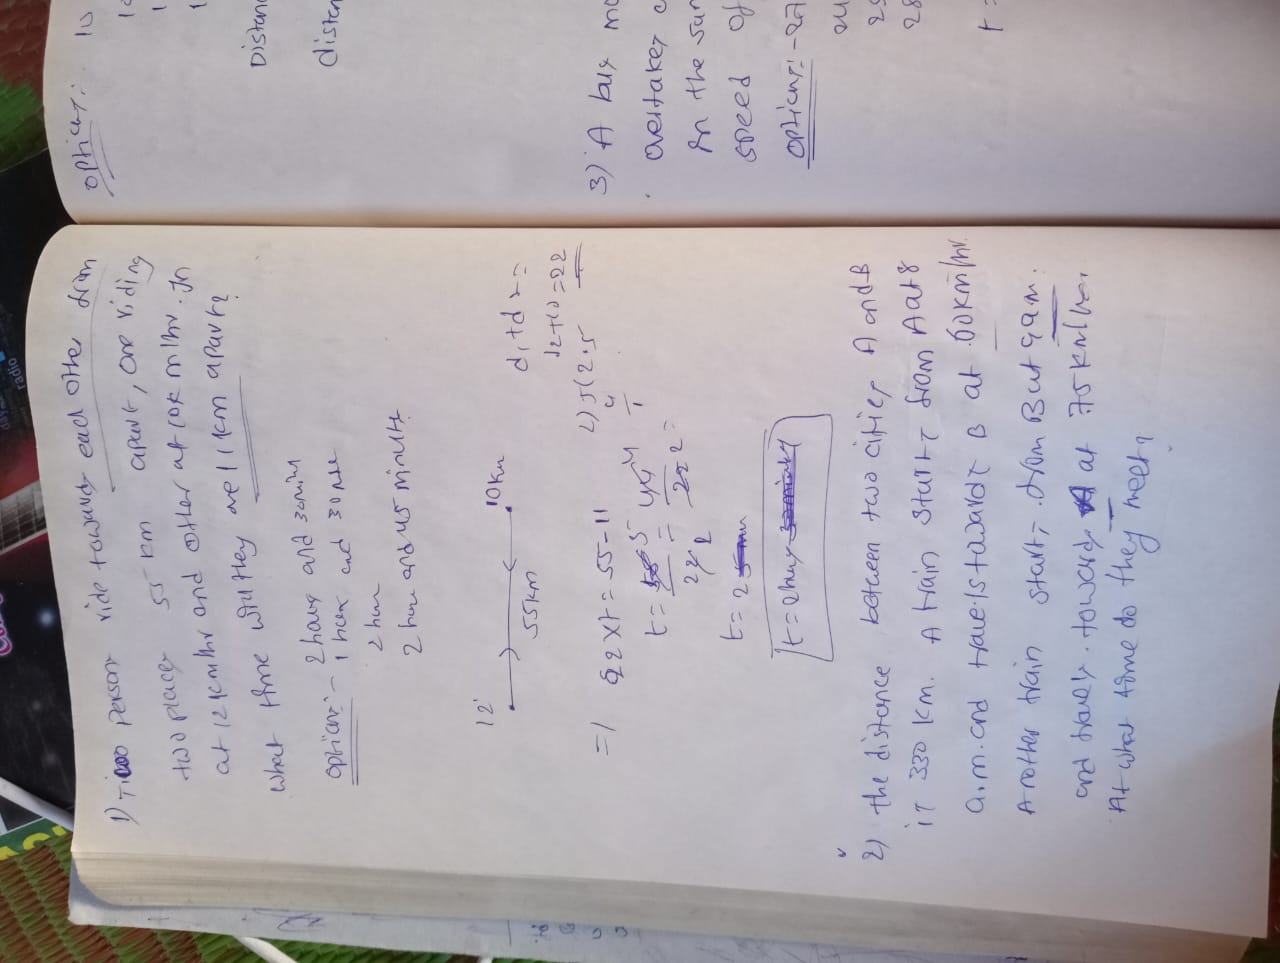 1) Two person ride towards each other from
two places 55 km apart, one riding
at 12 km/hr and other at 10 km/hr. In
what time will they are 11 km apart?
option:- 2 hours and 30 min
1 hour and 30 min
2 hour
2 hour and 45 minute
12
10km
55km
d1+d2=
12+10=22
22xt=55-11
t=
t=2
t=2 hours
2) the distance between two cities A and B
is 330 km. A train start from A at 8
a.m. and travels towards B at 60km/hr.
Another train starts from B at 9am.
and travels towards A at 75 km/hr.
At what time do they meet?
option: 10
Distan
distan
3) A bus mo
overtakes
in the sam
speed of
option:- 27
28
t =
radio